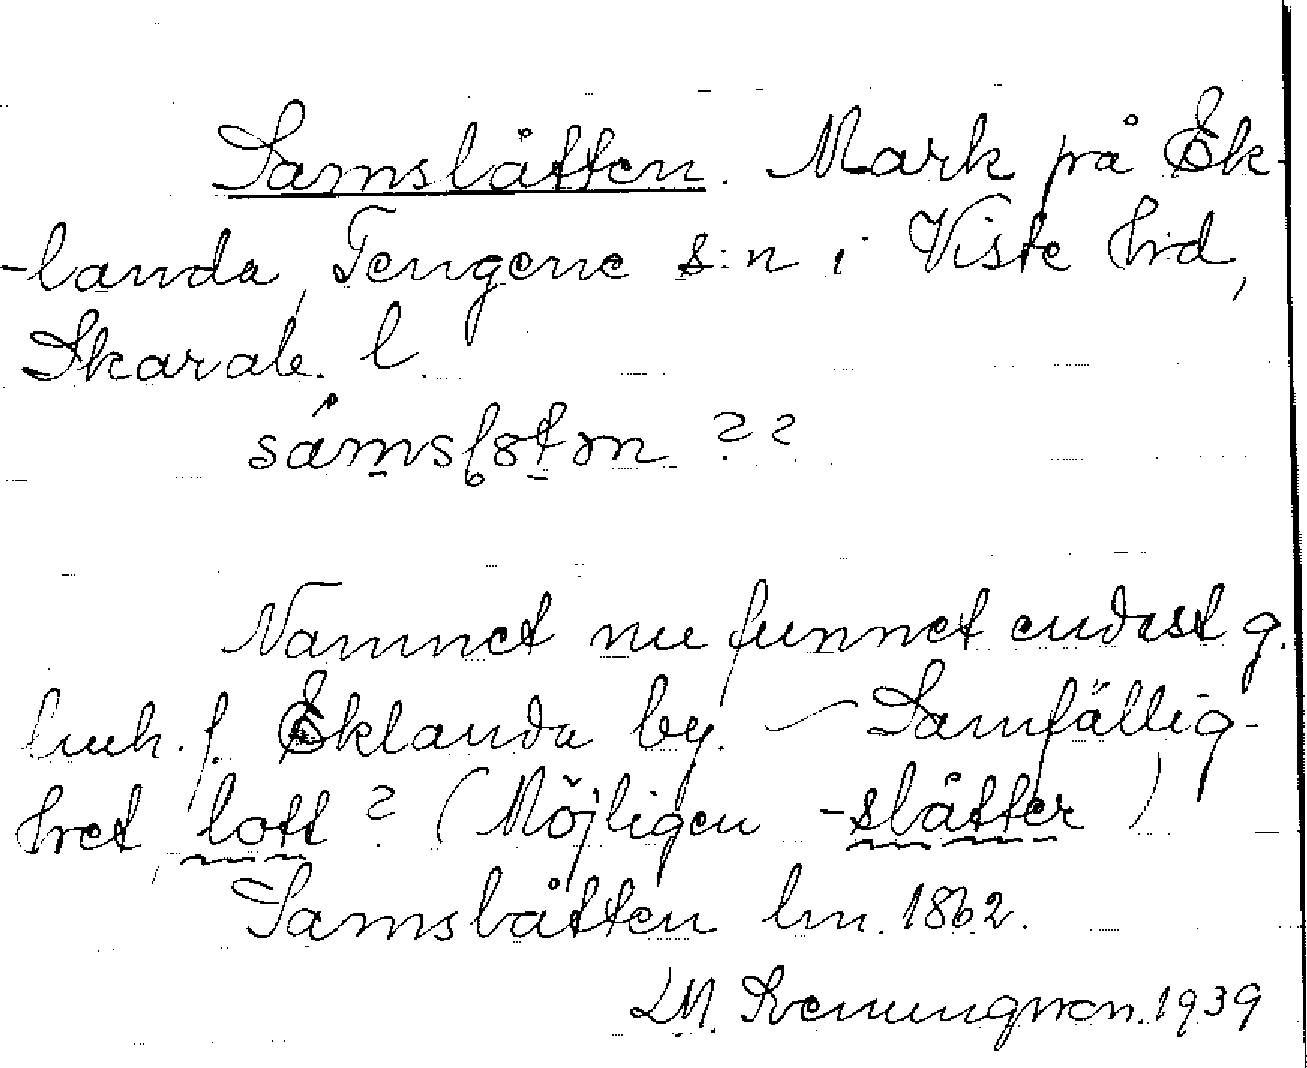 Samslåtten. Mark på Ek-
-landa, Tengene s:n i Viste hrd,
Skarab. l.
Namnet nu funnet endast g.
lmh. f. Eklanda by. – Samfällig-
het, lott? (Möjligen -slåtter)
Samslåtten lm. 1862.
LM. Svenungsson. 1939